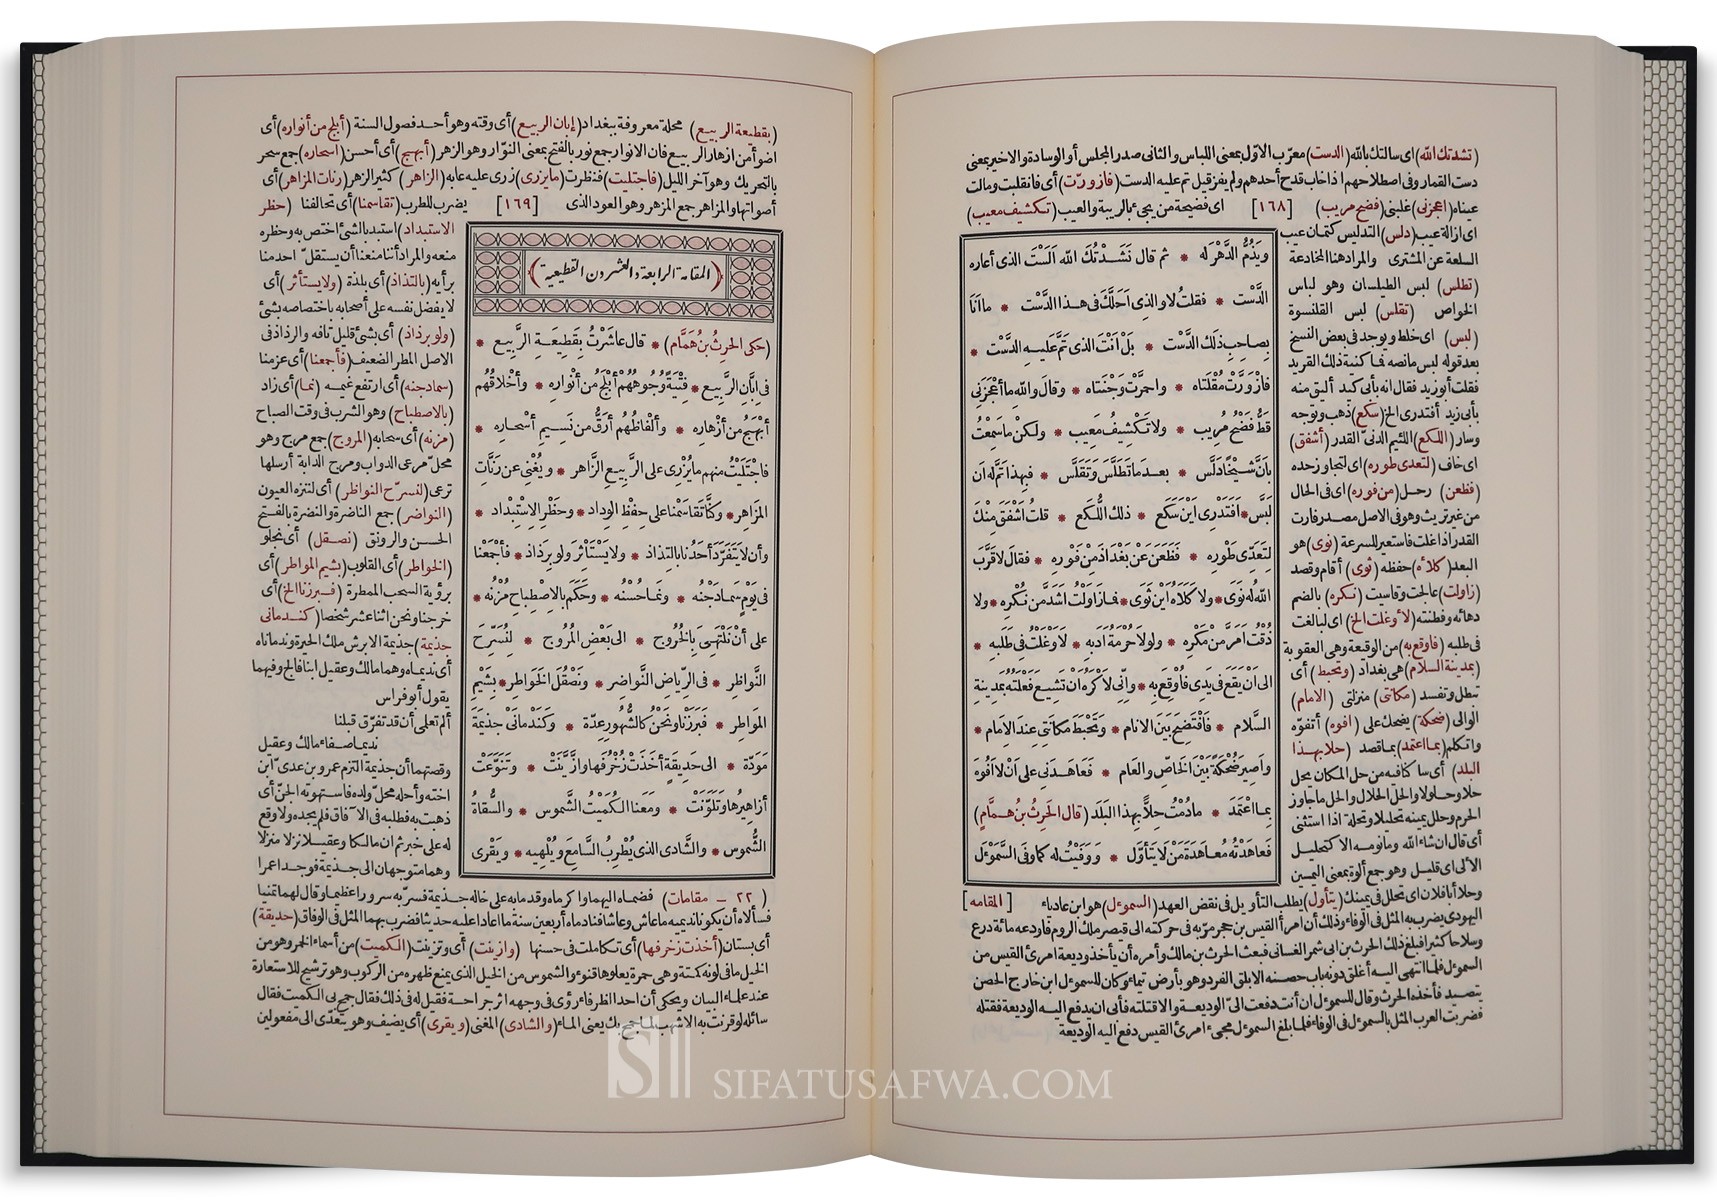 (نشدتك الله) اى سالتك بالله (الدست) معرّب الاوّل بمعنى اللباس والثانى صدر المجلس أو الوسادة والاخير بمعنى
دست القمار وفى اصطلاحهم اذا خاب قدح أحدهم ولم يفز قيل تم عليه الدست (فازورّت) أى فانقلبت ومالت
عيناه (اعجزنى) غلبنى (فضح مريب) [١٦٨] اى فضيحة من يجىء بالريبة والعيب (تكشيف معيب)
اى ازالة عيب (دلس) التدليس كتمان عيب
السلعة عن المشترى والمراد هنا المخادعة
(تطلس) لبس الطيلسان وهو لباس
الخواص (تقلس) لبس القلنسوة
(لبس) اى خلط ويوجد فى بعض النسخ
بعد قوله لبس مانصه فما كنية ذلك القريد
فقلت أبوزيد فقال انه بأبى كيد أليق منه
بأبى زيد أفتدرى الخ (سكع) ذهب وتوجه
وسار (اللكع) اللئيم الدنىّ القدر (أشفق)
اى خاف (لتعدى طوره) اى لتجاوز حده
(فظعن) رحل (من فوره) اى فى الحال
من غير تريث وهو فى الاصل مصدر فارت
القدر اذا غلت فاستعير للسرعة (نوى) هو
البعد (كلأه) حفظه (ثوى) أقام وقصد
(زاولت) عالجت وقاسيت (نكره) بالضم
دهائه وفطنته (لأوغلت الخ) اى لبالغت
فى طلبه (فاوقع به) من الوقيعة وهى العقوبة
(بمدينة السلام) هى بغداد (وتحبط) أى
تبطل وتفسد (مكانتى) منزلتى (الامام)
الوالى (ضحكة) يضحك على (افوه) أتفوّه
واتكلم (بما اعتمد) بما قصد (حلا بهذا
البلد) أى ساكنا فيه من حل المكان يحل
حلا وحلولا والحل الحلال والحل ما جاوز
الحرم وحلل يمينه تحليلا وتحلة اذا استثنى
أى قال ان شاء الله وما نومه الا كتحليل
الألى اى قليل وهو جمع ألوة بمعنى اليمين
ويذمّ الدّهر له * ثم قال نشدتك الله ألست الذى أعاره
الدّست * فقلت لا والذى احلّك فى هذا الدّست * ما أنا
بصاحب ذلك الدّست * بل أنت الذى تمّ عليه الدّست *
فازورّت مقلتاه * واحمرّت وجنتاه * وقال والله ما أعجزنى
قطّ فضح مريب * ولا تكشيف معيب * ولكن ما سمعت
بأنّ شيخا دلّس * بعد ما تطلّس وتقلّس * فبهذا تمّ له ان
لبّس * افتدرى اين سكع * ذلك اللّكع * قلت اشفق منك
لتعدّى طوره * فظعن عن بغداد من فوره * فقال لا قرّب
الله له نوى * ولا كلأه اين ثوى * فما زاولت اشدّ من نكره * ولا
ذقت امرّ من مكره * ولولا حرمة ادبه * لأوغلت فى طلبه *
الى أن يقع فى يدى فأوقع به * وانّى لأكره ان تشيع فعلته بمدينة
السّلام * فأفتضح بين الانام * وتحبط مكانتى عند الامام *
واصير ضحكة بين الخاصّ والعام * فعاهدنى على ان لا افوه
بما اعتمد * ما دمت حلّا بهذا البلد (قال الحرث بن همّام)
فعاهدته معاهدة من لا يتأوّل * ووفيت له كما وفى السّموءل
وحلا أبا فلان اى تحلل فى يمينك (يتأول) يطلب التأويل فى نقض العهد (السموءل) هو ابن عادياء [المقامه]
اليهودى يضرب به المثل فى الوفاء وذلك أن امرأ القيس بن حجر مرّ به فى حركته الى قيصر ملك الروم فاودعه مائة درع
وسلاحا كثيرا فبلغ ذلك الحرث بن ابى شمر الغسانى فبعث الحرث بن مالك وأمره أن يأخذ وديعة امرئ القيس من
السموءل فلما انتهى اليه أغلق دونه باب حصنه الابلق الفرد وهو بأرض تيماء وكان للسموءل ابن خارج الحصن
يتصيد فأخذه الحرث وقال للسموءل ان أنت دفعت الىّ الوديعة والا قتلته فأبى ان يدفع اليه الوديعة فقتله
فضربت العرب المثل بالسموءل فى الوفاء فلما بلغ السموءل مجىء امرئ القيس دفع اليه الوديعة
(بقطيعة الربيع) محلة معروفة ببغداد (إبان الربيع) أى وقته وهو أحد فصول السنة (أبلج من أنواره) أى
اضوأ من ازهار الربيع فان الانوار جمع نور بالفتح بمعنى النوّار وهو الزهر (أبهج) أى أحسن (اسحاره) جمع سحر
بالتحريك وهو آخر الليل (فاجتليت) فنظرت (ما يزرى) زرى عليه عابه (الزاهر) كثير الزهر (رنات المزاهر) أى
أصواتها والمزاهر جمع المزهر وهو العود الذى [١٦٩] يضرب للطرب (تقاسمنا) أى تحالفنا (حظر
الاستبداد) استبد بالشئ اختص به وحظره
منعه والمراد أننا منعنا أن يستقلّ احدنا
برأيه (بالتذاذ) أى بلذة (ولا يستأثر) أى
لا يفضل نفسه على أصحابه باختصاصه بشئ
(ولو برذاذ) أى بشئ قليل تافه والرذاذ فى
الاصل المطر الضعيف (فأجمعنا) أى عزمنا
(سما دجنه) أى ارتفع غيمه (نما) أى زاد
(بالاصطباح) وهو الشرب فى وقت الصباح
(مزنه) أى سحابه (المروج) جمع مرج وهو
محلّ مرعى الدواب ومرج الدابة أرسلها
ترعى (لنسرّح النواظر) أى لنتنزه العيون
(النواضر) جمع الناضرة والنضرة بالفتح
الحسن والرونق (نصقل) أى نجلو
(الخواطر) أى القلوب (بشيم المواطر) أى
برؤية السحب الممطرة (فبرزنا الخ) أى
خرجنا ونحن اثنا عشر شخصا (كندمانى
جذيمة) جذيمة الابرش ملك الحيرة وندماناه
أى نديماه وهما مالك وعقيل ابنا فالج وفيهما
يقول أبو فراس
ألم تعلمى أن قد تفرّق قبلنا
نديما صفاء مالك وعقيل
وقصتهما أن جذيمة التزم عمرو بن عدىّ ابن
اخته وأحله محلّ ولده فاستهوته الجن أى
ذهبت به فطلبه فى الآفاق فلم يجده ولا وقع
له على خبر ثم ان مالكا وعقيلا نزلا منزلا
وهما متوجهان الى جذيمة فوجدا عمرا
(المقامة الرابعة والعشرون القطيعية)
(حكى الحرث بن همّام) * قال عاشرت بقطيعة الرّبيع *
فى إبّان الرّبيع * فتية وجوههم أبلج من أنواره * وأخلاقهم
أبهج من أزهاره * وألفاظهم أرقّ من نسيم أسحاره *
فاجتليت منهم ما يزرى على الرّبيع الزّاهر * ويغنى عن رنّات
المزاهر * وكنّا تقاسمنا على حفظ الوداد * وحظر الاستبداد *
وأن لا يتفرّد أحدنا بالتذاذ * ولا يستأثر ولو برذاذ * فأجمعنا
فى يوم سما دجنه * ونما حسنه * وحكم بالاصطباح مزنه *
على أن نلتهى بالخروج * الى بعض المروج * لنسرّح
النّواظر * فى الرّياض النّواضر * ونصقل الخواطر * بشيم
المواطر * فبرزنا ونحن كالشّهور عدّة * وكندمانى جذيمة
مودّة * الى حديقة أخذت زخرفها وازّيّنت * وتنوّعت
أزاهيرها وتلوّنت * ومعنا الكميت الشّموس * والسّقاة
الشّموس * والشّادى الذى يطرب السّامع ويلهيه * ويقرى
(٢٢ – مقامات) فضماه اليهما واكرماه وقدما به على خاله جذيمة فسرّ به سرورا عظيما وقال لهما تمنيا
فسألاه أن يكونا نديميه ما عاش وعاشا فنادماه أربعين سنة ما أعادا عليه حديثا فضرب بهما المثل فى الوفاق (حديقة)
أى بستان (أخذت زخرفها) أى تكاملت فى حسنها (وازينت) أى وتزينت (الكميت) من أسماء الخمر وهو من
الخيل ما فى لونه كمتة وهى حمرة يعلوها قنوء والشموس من الخيل الذى يمنع ظهره من الركوب وهو ترشيح للاستعارة
عند علماء البيان ويحكى أن احد الظرفاء رؤى فى وجهه اثر جراحة فقيل له فى ذلك فقال جمح بى الكميت فقال
سائله لو قرنت به الاشهب لما جمح بك يعنى الماء (والشادى) المغنى (ويقرى) أى يضيف وهو يتعدّى الى مفعولين
SIFATUSAFWA.COM